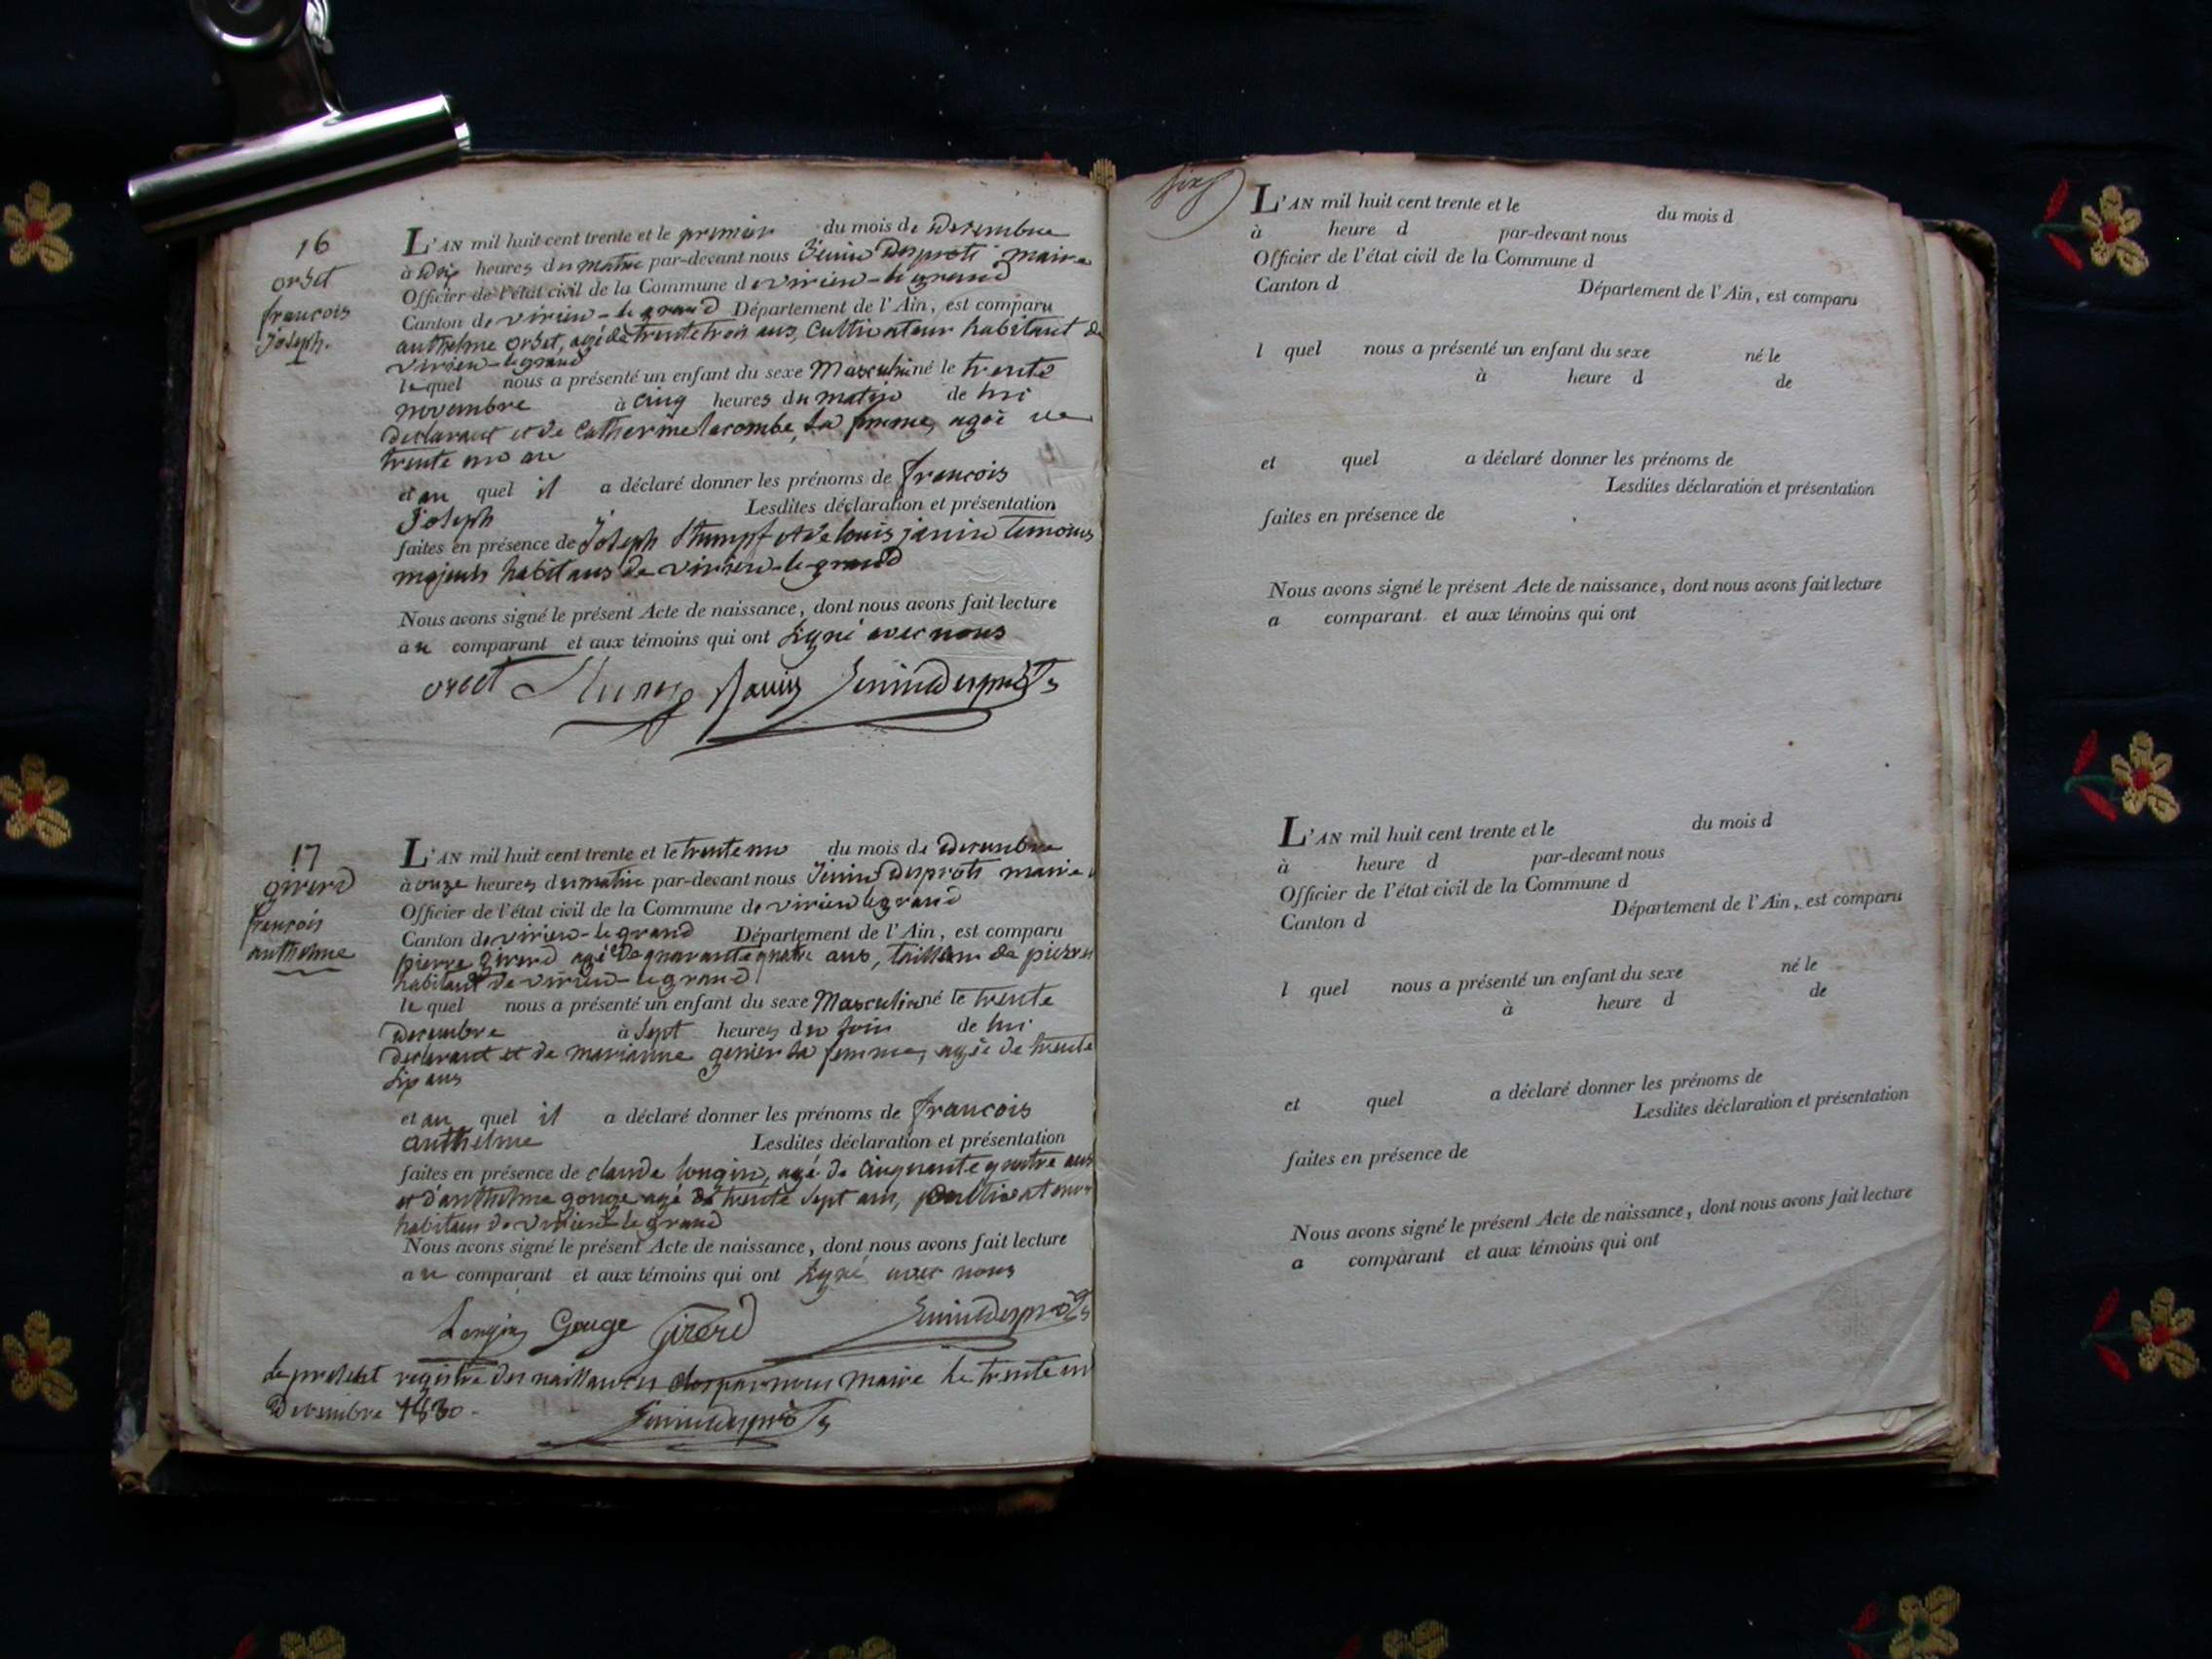 16
orset
francois
Joseph.
L'AN mil huit cent trente et le premier du mois de Decembre
à Dix heures du matin par-devant nous Jenin Desprots maire
Officier de l'état civil de la Commune de virieu-le grand
Canton de virieu-le grand Département de l'Ain, est comparu
anthelme orset, agé de trente trois ans, Cultivateur habitant de
virieu-le grand
le quel nous a présenté un enfant du sexe Masculin né le trente
novembre à cinq heures du matin de lui
declarant et de Catherine lacombe, sa femme, agée de
trente un an
et au quel il a déclaré donner les prénoms de francois
Joseph Lesdites déclaration et présentation
faites en présence de Joseph Stumpf et de louis janin temoins
majeurs habitans de virieu-le-grand
Nous avons signé le présent Acte de naissance, dont nous avons fait lecture
au comparant et aux témoins qui ont signé avec nous
orset Janin Jenin Desprots
17
girerd
francois
anthelme
L'AN mil huit cent trente et le trente un du mois de Decembre
à onze heures du matin par-devant nous Jenin Desprots maire
Officier de l'état civil de la Commune de virieu le grand
Canton de virieu-le grand Département de l'Ain, est comparu
pierre girerd agé de quarante quatre ans, tailleur de pierre
habitant de virieu-le grand
le quel nous a présenté un enfant du sexe Masculin né le trente
Decembre à sept heures du soir de lui
declarant et de marianne genier sa femme, agée de trente
six ans
et au quel il a déclaré donner les prénoms de francois
anthelme Lesdites déclaration et présentation
faites en présence de claude longin, agé de cinquante quatre ans
et d'anthelme gouge agé de trente sept ans, cultivateurs
habitans de virieu-le grand
Nous avons signé le présent Acte de naissance, dont nous avons fait lecture
au comparant et aux témoins qui ont signé avec nous
Longin Gouge Girerd Jenin Desprots
Le present registre des naissances clos par nous maire le trente un
Decembre 1830.
Jenin Desprots
six
L'AN mil huit cent trente et le du mois d
à heure d par-devant nous
Officier de l'état civil de la Commune d
Canton d Département de l'Ain, est comparu
l quel nous a présenté un enfant du sexe né le
à heure d de
et quel a déclaré donner les prénoms de
Lesdites déclaration et présentation
faites en présence de
Nous avons signé le présent Acte de naissance, dont nous avons fait lecture
a comparant et aux témoins qui ont
L'AN mil huit cent trente et le du mois d
à heure d par-devant nous
Officier de l'état civil de la Commune d
Canton d Département de l'Ain, est comparu
l quel nous a présenté un enfant du sexe né le
à heure d de
et quel a déclaré donner les prénoms de
Lesdites déclaration et présentation
faites en présence de
Nous avons signé le présent Acte de naissance, dont nous avons fait lecture
a comparant et aux témoins qui ont